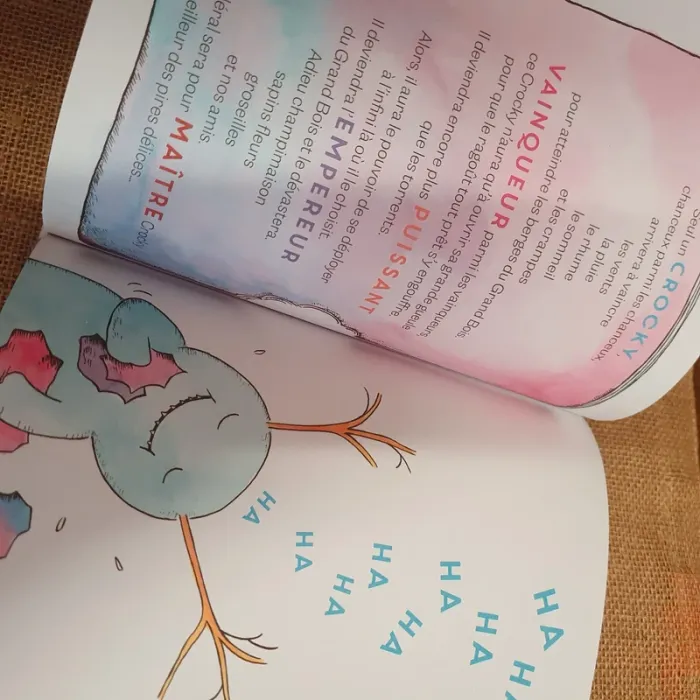 un CROCKY
chanceux parmi les chanceux,
arrivera à vaincre
les vents
la pluie
le rhume
le sommeil
et les crampes
pour atteindre les berges du Grand Bois.
VAINQUEUR parmi les vainqueurs,
ce Crocky n'aura qu'à ouvrir sa grande gueule
pour que le ragoût tout prêt s'y engouffre.
Il deviendra encore plus PUISSANT
que les torrents.
Alors, il aura le pouvoir de se déployer
à l'infini, là où il le choisit.
Il deviendra l'EMPEREUR
du Grand Bois et le dévastera.
Adieu champimaison
sapins fleurs
groseilles
et nos amis.
sera pour MAÎTRE Crocky
des pires délices...
HA
HA
HA
HA
HA
HA
HA
HA